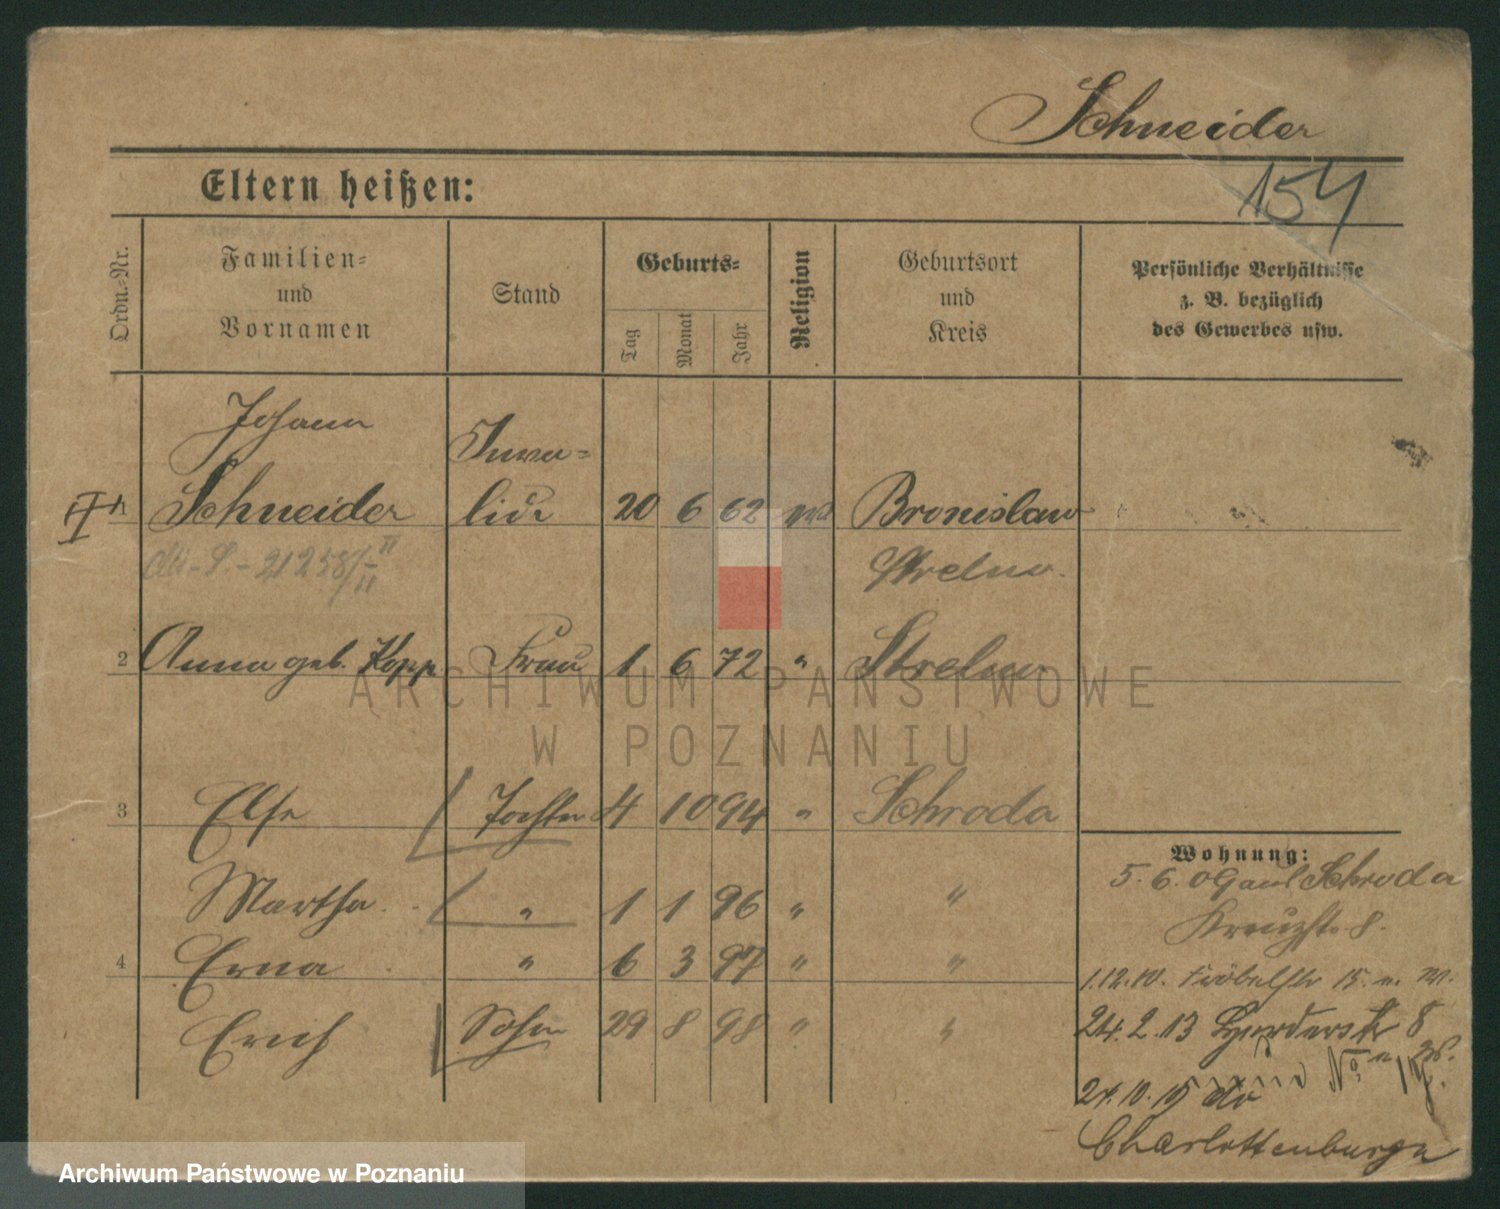 Schneider
154
Eltern heißen:
Ordn.-Nr.
Familien-
und
Vornamen
Stand
Geburts-
Tag
Monat
Jahr
Religion
Geburtsort
und
Kreis
Persönliche Verhältnisse
z. B. bezüglich
des Gewerbes usw.
Johann
Schneider
Inva-
lide
20 6 62
Bronislaw
Strelno.
21258/
2 Anna geb. Kopp Frau 1 6 72 " Strelno
ARCHIWUM PAŃSTWOWE
W POZNANIU
3 Else Tochter 4 10 94 " Schroda
Martha " 1 1 96 " "
4 Erna " 6 3 97 " "
Erich Sohn 29 8 98 " "
Wohnung:
5. 6. 09 aus Schroda
Kreuzstr. 8.
1.12.10. Fröbelstr 15. n. W.
24. 2. 13 8
24. 10. 19
Charlottenburg
Archiwum Państwowe w Poznaniu